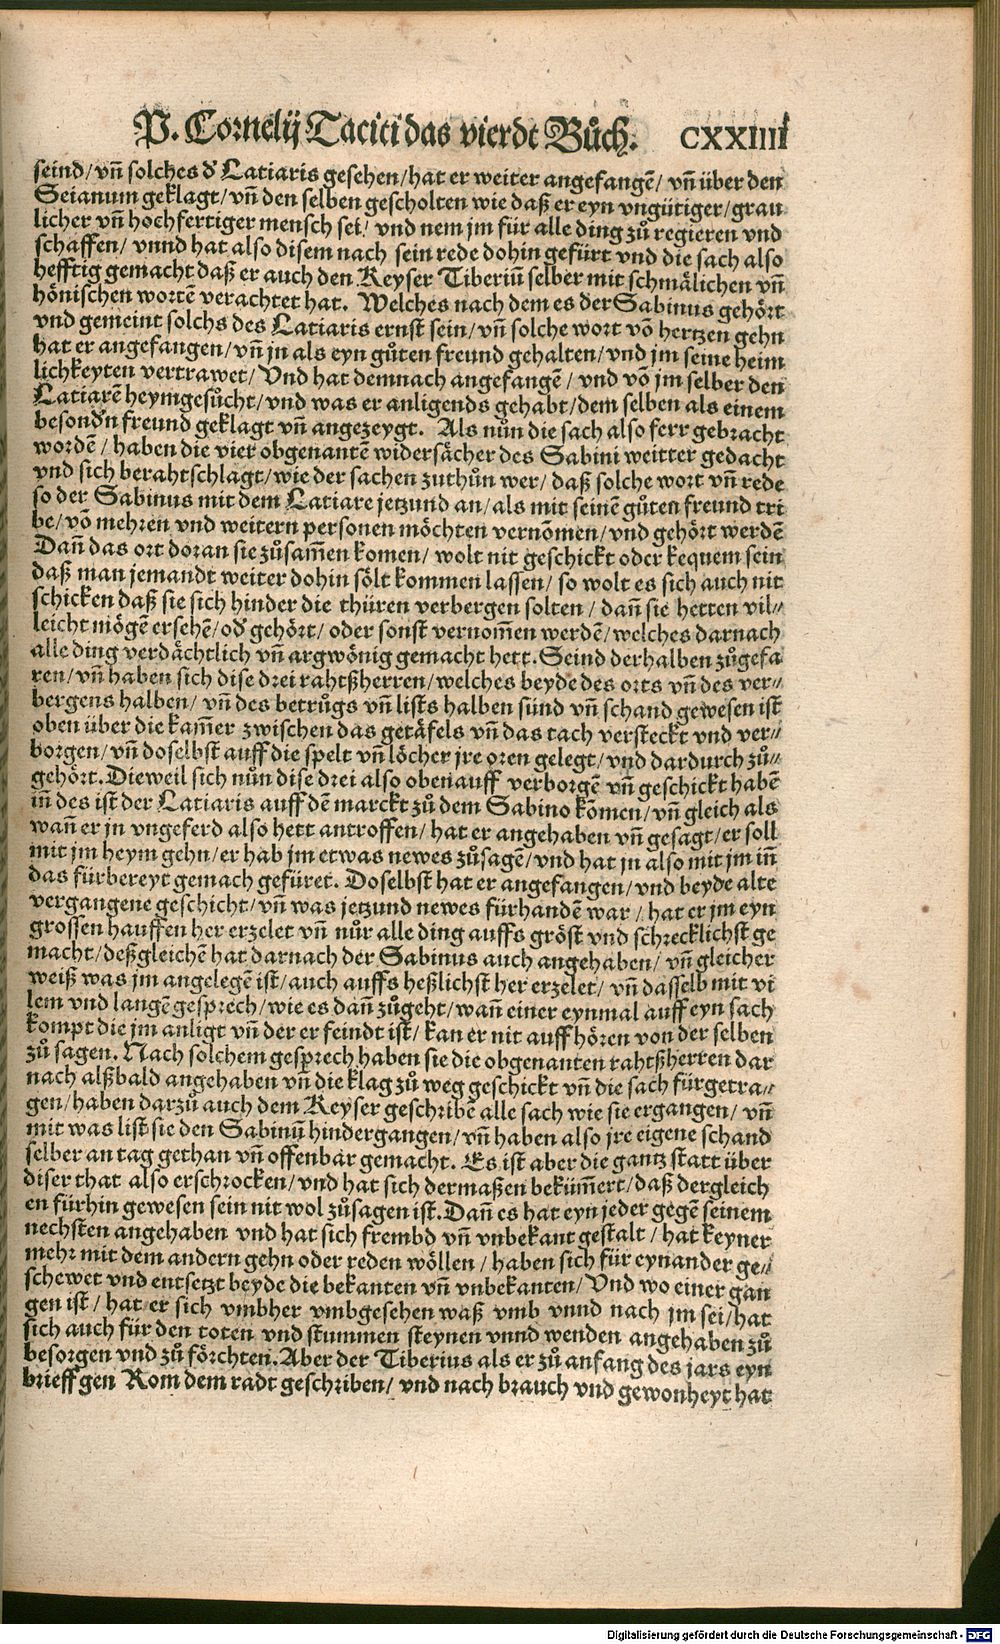 P. Cornelij Taciti das vierdt Bůch. CXXIIII
seind/ vñ solches d' Latiaris gesehen/ hat er weiter angefangē/ vñ über den
Seianum geklagt/ vñ den selben gescholten wie daß er eyn vngütiger/ grau
licher vñ hochfertiger mensch sei/ vnd nem jm für alle ding zů regieren vnd
schaffen/ vnnd hat also disem nach sein rede dohin gefürt vnd die sach also
hefftig gemacht daß er auch den Keyser Tiberiū selber mit schmälichen vñ
hönischen wortē verachtet hat. Welches nach dem es der Sabinus gehört
vnd gemeint solchs des Latiaris ernst sein/ vñ solche wort vō hertzen gehn
hat er angefangen/ vñ jn als eyn gůten freund gehalten/ vnd jm seine heim
lichkeyten vertrawet/ Vnd hat demnach angefangē/ vnd vō jm selber den
Latiarē heymgesůcht/ vnd was er anligends gehabt/ dem selben als einem
besond'n freund geklagt vñ angezeygt. Als nůn die sach also ferr gebracht
wordē/ haben die vier obgenantē widersächer des Sabini weitter gedacht
vnd sich berahtschlagt/ wie der sachen zuthůn wer/ daß solche wort vñ rede
so der Sabinus mit dem Latiare jetzund an/ als mit seinē gůten freund tri
be/ vō mehren vnd weitern personen möchten vernōmen/ vnd gehört werdē
Dañ das ort doran sie zůsam̄en komen/ wolt nit geschickt oder kequem sein
daß man jemandt weiter dohin sölt kommen lassen/ so wolt es sich auch nit
schicken daß sie sich hinder die thüren verbergen solten/ dañ sie hetten vil⸗
leicht mögē ersehē/ od' gehört/ oder sonst vernom̄en werdē/ welches darnach
alle ding verdächtlich vñ argwönig gemacht hett. Seind derhalben zůgefa
ren/ vñ haben sich dise drei rahtßherren/ welches beyde des orts vñ des ver⸗
bergens halben/ vñ des betrůgs vñ lists halben sünd vñ schand gewesen ist
oben über die kam̄er zwischen das getäfels vñ das tach versteckt vnd ver⸗
borgen/ vñ doselbst auff die spelt vñ löcher jre oren gelegt/ vnd dardurch zů⸗
gehört. Dieweil sich nůn dise drei also obenauff verborgē vñ geschickt habē
iñ des ist der Latiaris auff dē marckt zů dem Sabino kōmen/ vñ gleich als
wañ er jn vngeferd also hett antroffen/ hat er angehaben vñ gesagt/ er soll
mit jm heym gehn/ er hab jm etwas newes zůsagē/ vnd hat jn also mit jm iñ
das fürbereyt gemach gefüret. Doselbst hat er angefangen/ vnd beyde alte
vergangene geschicht/ vñ was jetzund newes fürhandē war/ hat er jm eyn
grossen hauffen her erzelet vñ nůr alle ding auffs gröst vnd schrecklichst ge
macht/ deßgleichē hat darnach der Sabinus auch angehaben/ vñ gleicher
weiß was jm angelegē ist/ auch auffs heßlichst her erzelet/ vñ dasselb mit vi
lem vnd langē gesprech/ wie es dañ zůgeht/ wañ einer eynmal auff eyn sach
kompt die jm anligt vñ der er feindt ist/ kan er nit auff hören von der selben
zů sagen. Nach solchem gesprech haben sie die obgenanten rahtßherren dar
nach alßbald angehaben vñ die klag zů weg geschickt vñ die sach fürgetra⸗
gen/ haben darzů auch dem Keyser geschribē alle sach wie sie ergangen/ vñ
mit was list sie den Sabinū hindergangen/ vñ haben also jre eigene schand
selber an tag gethan vñ offenbar gemacht. Es ist aber die gantz statt über
diser that also erschrocken/ vnd hat sich dermaßen beküm̄ert/ daß dergleich
en fürhin gewesen sein nit wol zůsagen ist. Dañ es hat eyn jeder gegē seinem
nechsten angehaben vnd hat sich frembd vñ vnbekant gestalt/ hat keyner
mehr mit dem andern gehn oder reden wöllen/ haben sich für eynander ge⸗
schewet vnd entsetzt beyde die bekanten vñ vnbekanten/ Vnd wo einer gan
gen ist/ hat er sich vmbher vmbgesehen waß vmb vnnd nach jm sei/ hat
sich auch für den toten vnd stummen steynen vnnd wenden angehaben zů
besorgen vnd zů förchten. Aber der Tiberius als er zů anfang des jars eyn
brieff gen Rom dem radt geschriben/ vnd nach brauch vnd gewonheyt hat
Digitalisierung gefördert durch die Deutsche Forschungsgemeinschaft - DFG